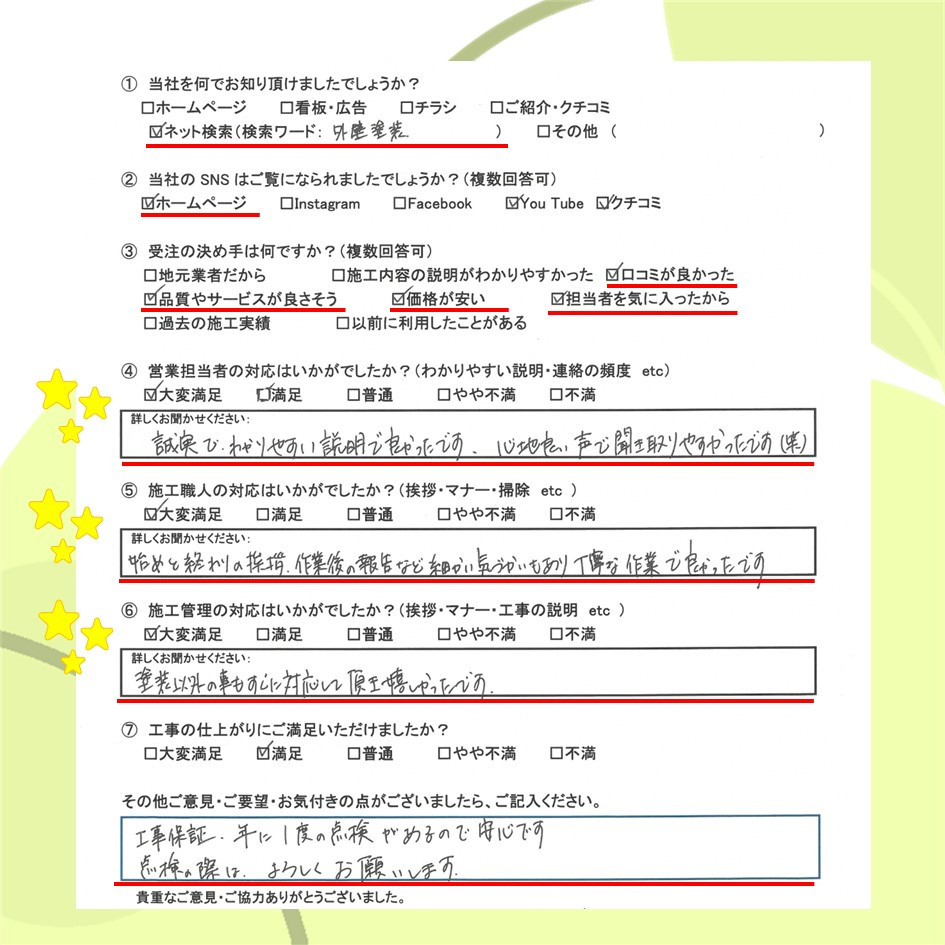 ① 当社を何でお知り頂けましたでしょうか？
□ホームページ □看板・広告 □チラシ □ご紹介・クチコミ
☑ネット検索（検索ワード： 外壁塗装 ） □その他 （ ）
② 当社の SNS はご覧になられましたでしょうか？（複数回答可）
☑ホームページ □Instagram □Facebook ☑You Tube ☑クチコミ
③ 受注の決め手は何ですか？（複数回答可）
□地元業者だから □施工内容の説明がわかりやすかった ☑口コミが良かった
☑品質やサービスが良さそう ☑価格が安い ☑担当者を気に入ったから
□過去の施工実績 □以前に利用したことがある
④ 営業担当者の対応はいかがでしたか？（わかりやすい説明・連絡の頻度 etc）
☑大変満足 □満足 □普通 □やや不満 □不満
詳しくお聞かせください：
誠実で、わかりやすい説明で良かったです、心地良い声で聞き取りやすかったです（笑）
⑤ 施工職人の対応はいかがでしたか？（挨拶・マナー・掃除 etc ）
☑大変満足 □満足 □普通 □やや不満 □不満
詳しくお聞かせください：
始めと終わりの挨拶、作業後の報告など細かい気づかいもあり丁寧な作業で良かったです
⑥ 施工管理の対応はいかがでしたか？（挨拶・マナー・工事の説明 etc ）
☑大変満足 □満足 □普通 □やや不満 □不満
詳しくお聞かせください：
塗装以外の事もすぐに対応して頂き嬉しかったです。
⑦ 工事の仕上がりにご満足いただけましたか？
□大変満足 ☑満足 □普通 □やや不満 □不満
その他ご意見・ご要望・お気付きの点がございましたら、ご記入ください。
工事保証、年に1度の点検があるので安心です
点検の際は、よろしくお願いします。
貴重なご意見・ご協力ありがとうございました。